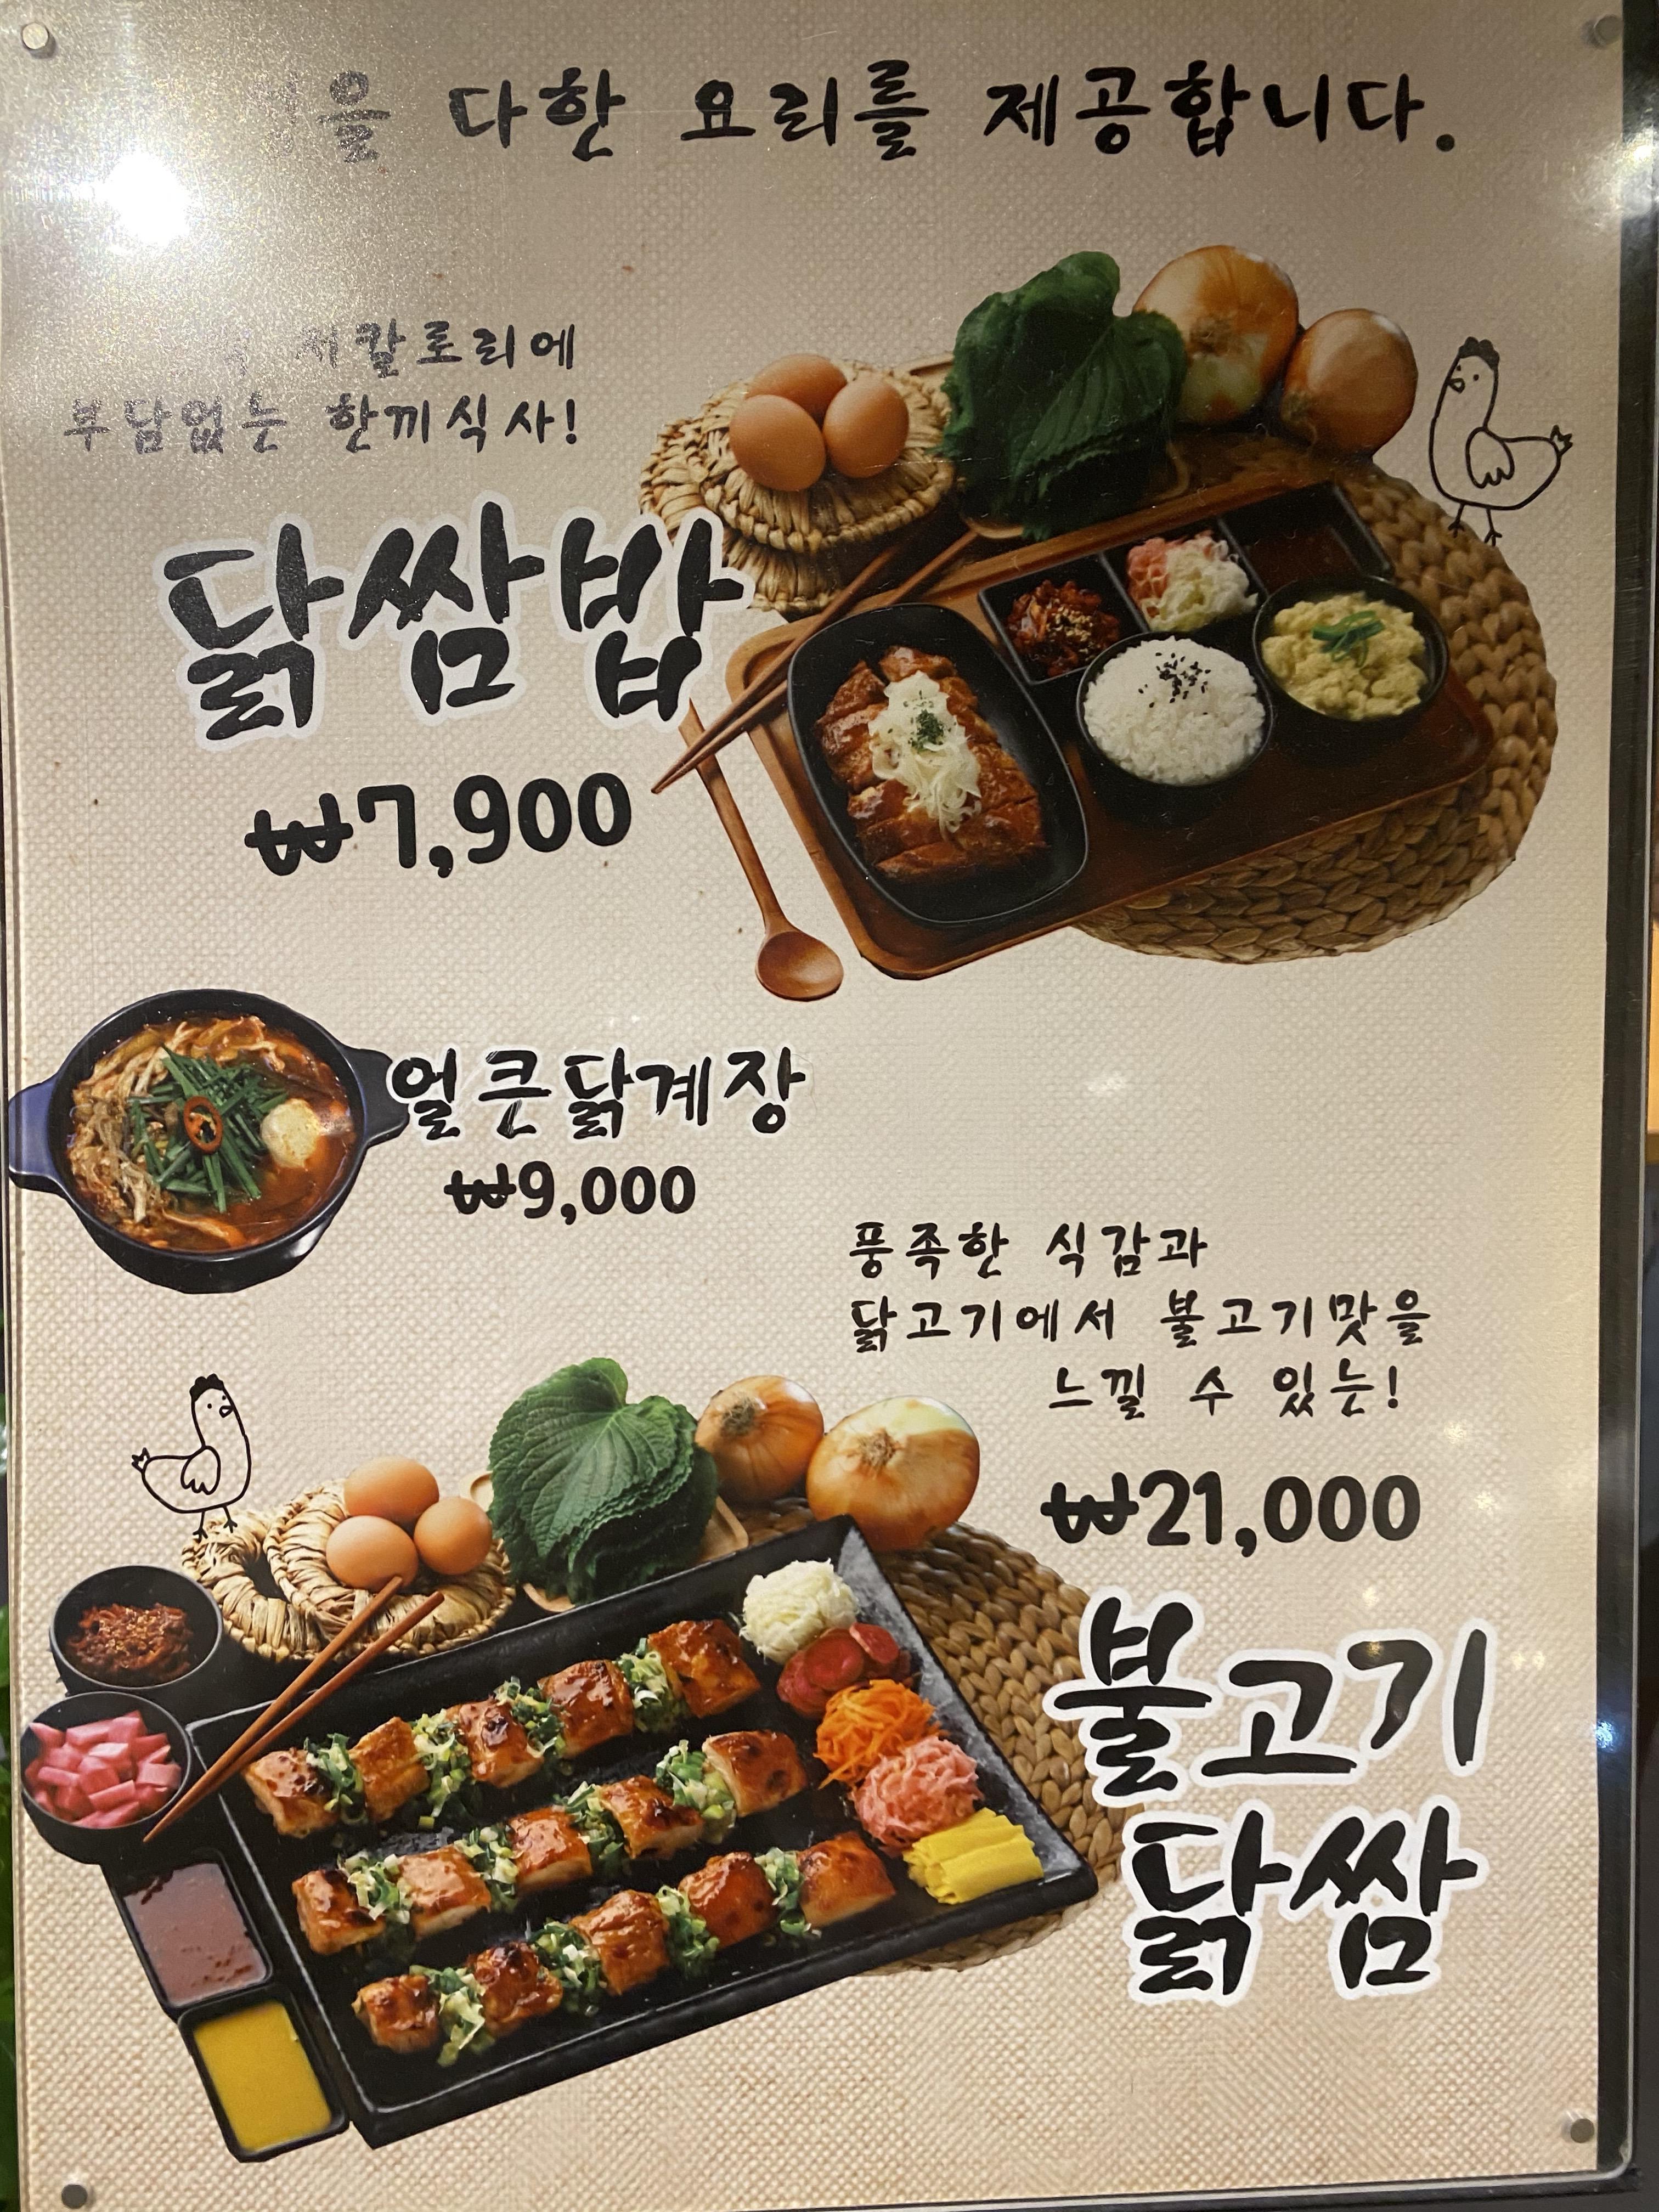 다한 요리를 제공합니다.
저칼로리에
부담없는 한끼식사!
닭쌈밥
₩7,900
얼큰닭계장
₩9,000
풍족한 식감과
닭고기에서 불고기맛을
느낄 수 있는!
₩21,000
불고기
닭쌈